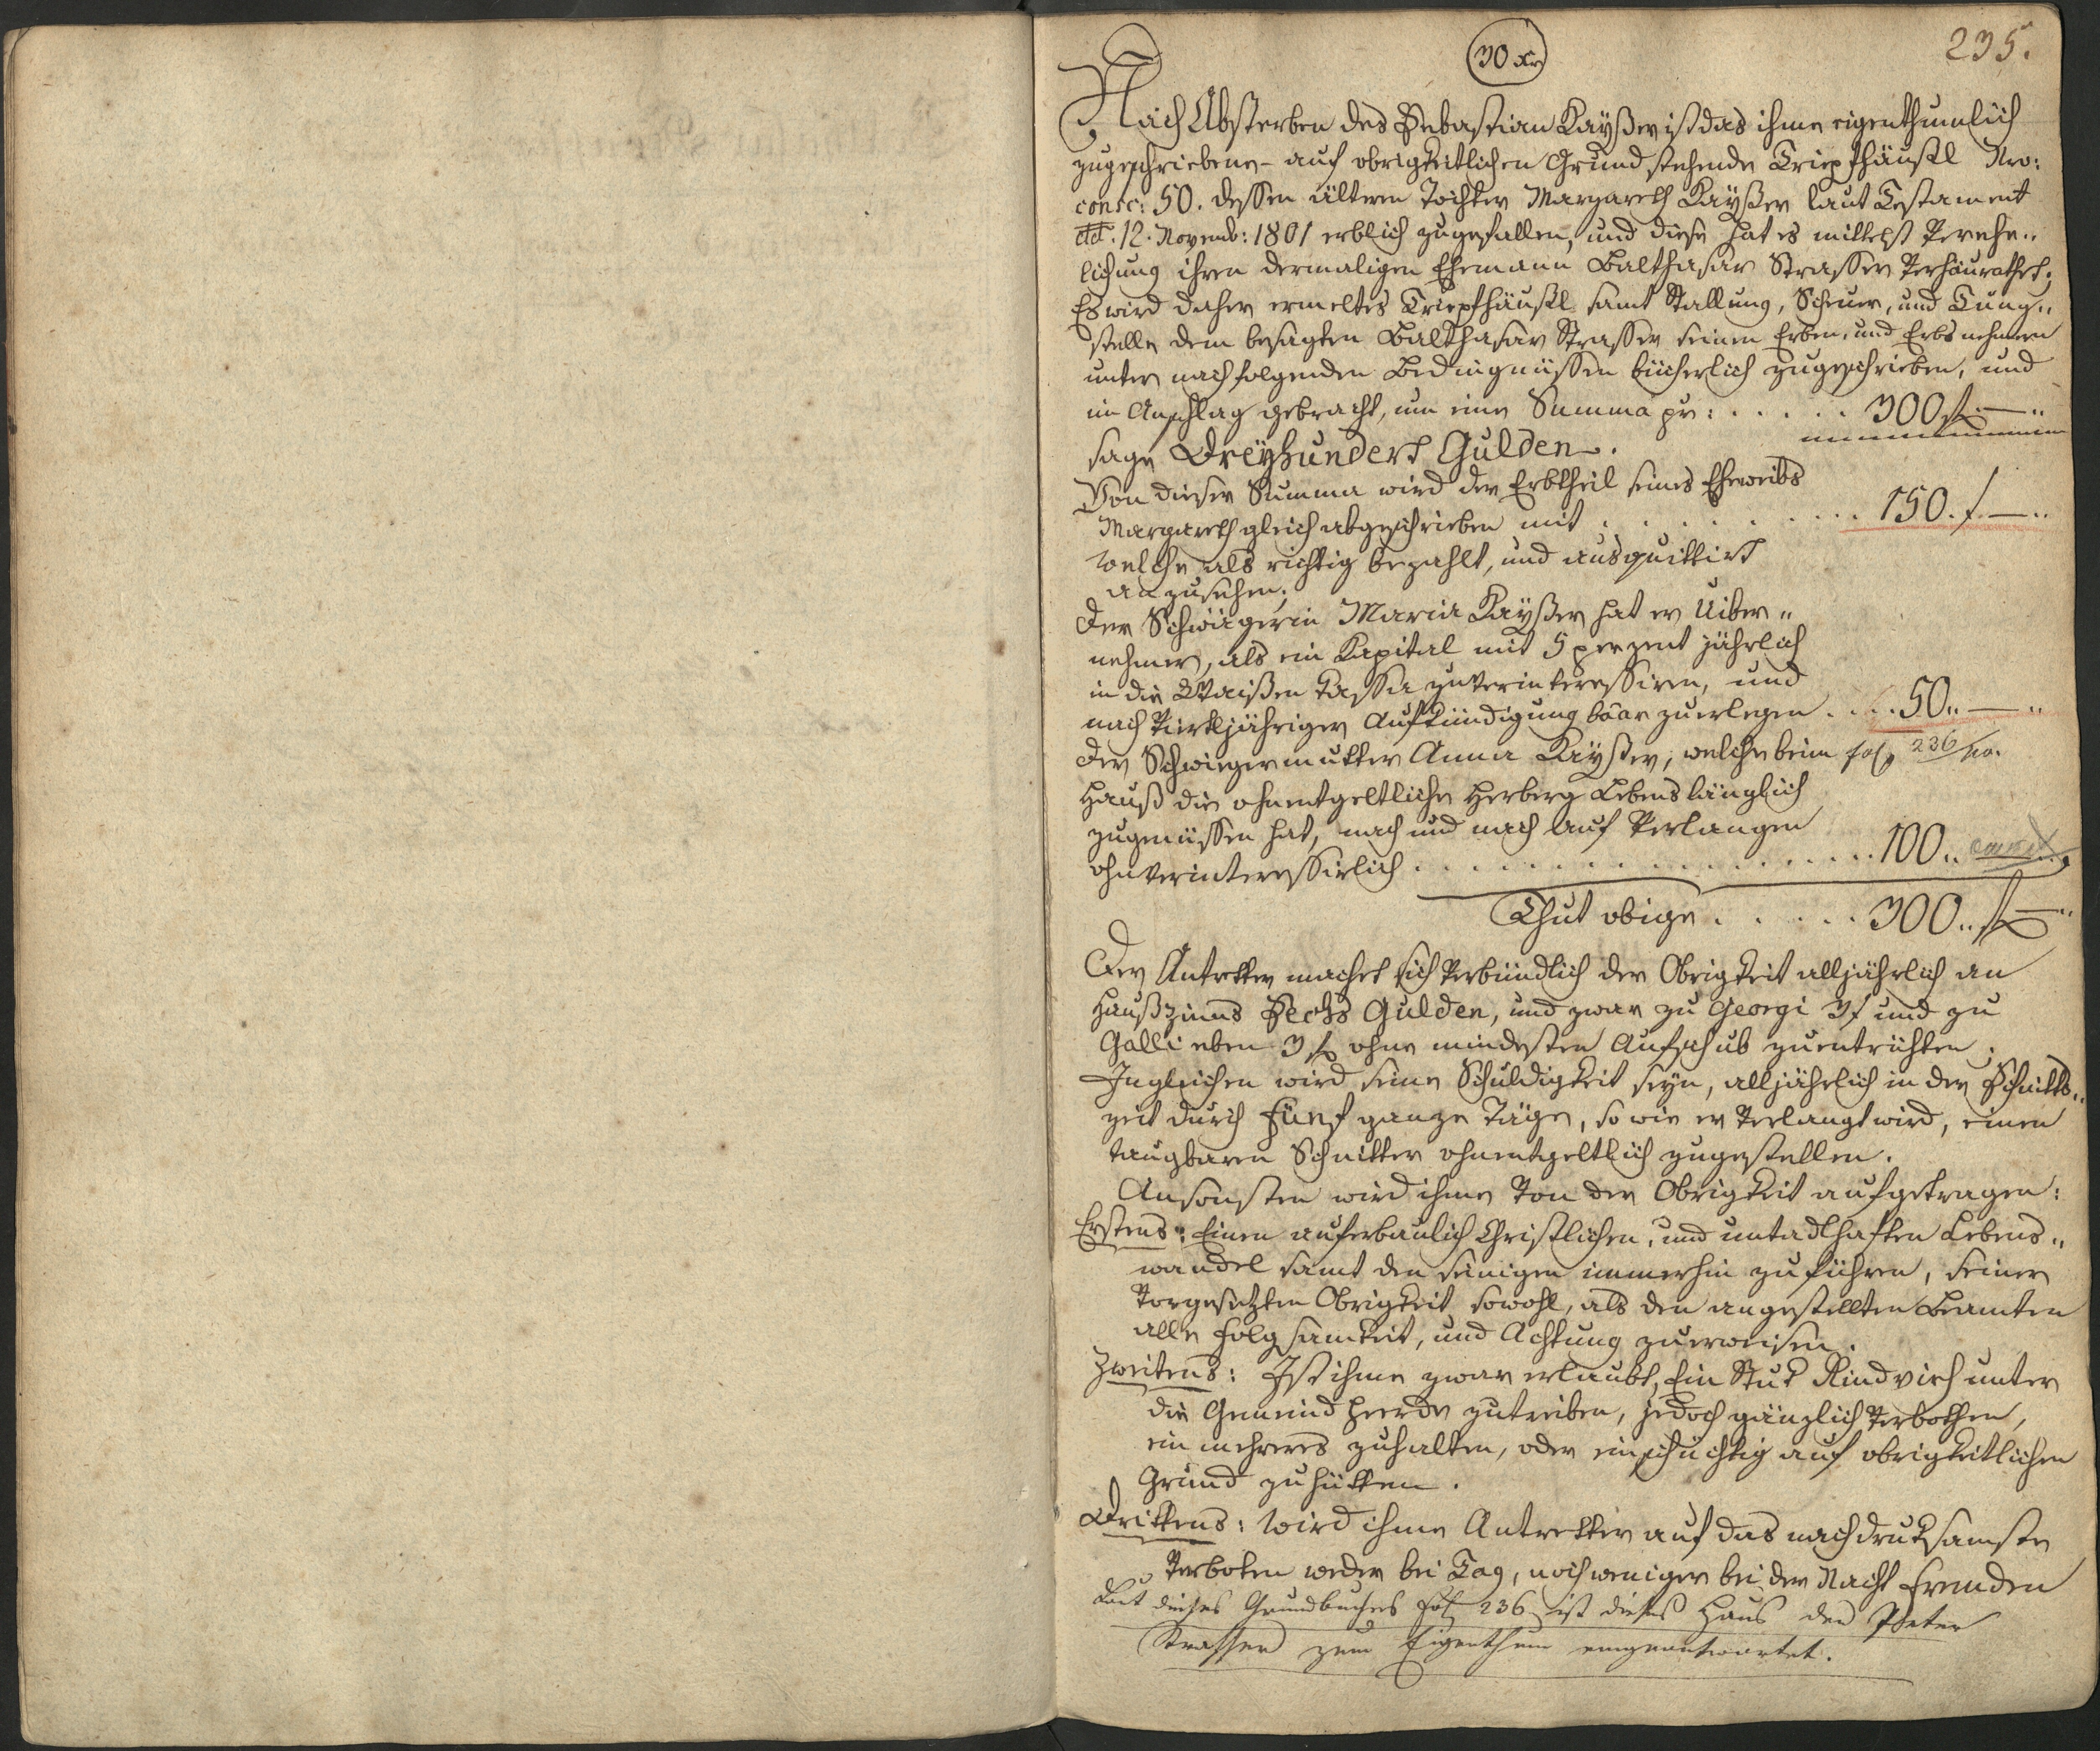 235.
30 xr
Nach Absterben des Sebastian Kayßer ist das ihme eigenthumlich
zugeschriebene – auf obrigkeitlichen Grund stehende Tripfhäußl Nro:
consc: 50. dessen ältern Tochter Margareth Kayßer laut Testament
dtt. 12. Novemb: 1801 erblich zugefallen, und diese hat es mittelst Verehe„
lichung ihren dermaligen Ehemann Balthasar Strasser verheurathet;
Es wird daher ermeltes Tripfhäußl samt Stallung, Scheuer, und Tung„
stelle dem besagten Balthasar Strasser seinen Erben, und Erbsnehmern
unter nachfolgenden Bedingnüssen bücherlich zugeschrieben, und
im Anschlag gebracht, um eine Summa pr: . . . . . 300 f — „
sage Dreyhundert Gulden.
Von dieser Summa wird der Erbtheil seines Eheweibs
Margareth gleich abgeschrieben mit . . . . . . . . . 150. f — „
welche als richtig bezahlt, und ausquittirt
anzusehen;
Der Schwägerin Maria Kayßer hat er Uiber„
nehmer, als ein Kapital mit 5 perzent jährlich
in die Waißen Cassa zuverinteressiren, und
nach viertljähriger Aufkündigung baar zuerlegen . . . 50 „ — „
Der Schwiegermutter Anna Kayßer, welche beim fol 236
Hauß die ohnentgeltliche Herberg Lebenslänglich
zugenüssen hat, nach und nach auf Verlangen
ohnverinteressirlich . . . . . . . . . . . . . . . . . 100 „
Thut obige . . . . . 300 „ f — „
Der Antretter machet sich verbündlich der Obrigkeit alljährlich an
Haußzinns Sechs Gulden, und zwar zu Georgi 3 f und zu
Galli eben 3 f ohne mindesten Aufschub zuentrichten;
Ingleichen wird seine Schuldigkeit seyn, alljährlich in der Schnitts„
zeit durch Fünf ganze Täge, so wie er verlangt wird, einen
taugbaren Schnitter ohnentgeltlich zugestellen.
Ansonsten wird ihme von der Obrigkeit aufgetragen:
Erstens: Einen auferbaulich Christlichen, und untadlhaften Lebens„
wandel samt den seinigen immerhin zuführen, seiner
vorgesetzten Obrigkeit sowohl, als den angestellten Beamten
alle Folgsamkeit, und Achtung zuerweisen.
Zweitens: Ist ihme zwar erlaubt, Ein Stuk Rindvieh unter
die Gemeind Heerde zutreiben, jedoch gänzlich verbothen,
ein mehreres zuhalten, oder einschüchtig auf obrigkeitlichen
Grund zuhütten.
Drittens: Wird ihme Antretter auf das nachdruksamste
verboten weder bei Tag, noch weniger bei der Nacht Fremden
Laut dieses Grundbuches Fol 236 ist dieses Haus dem Peter
Strasser zum Eigenthum eingeantwortet.